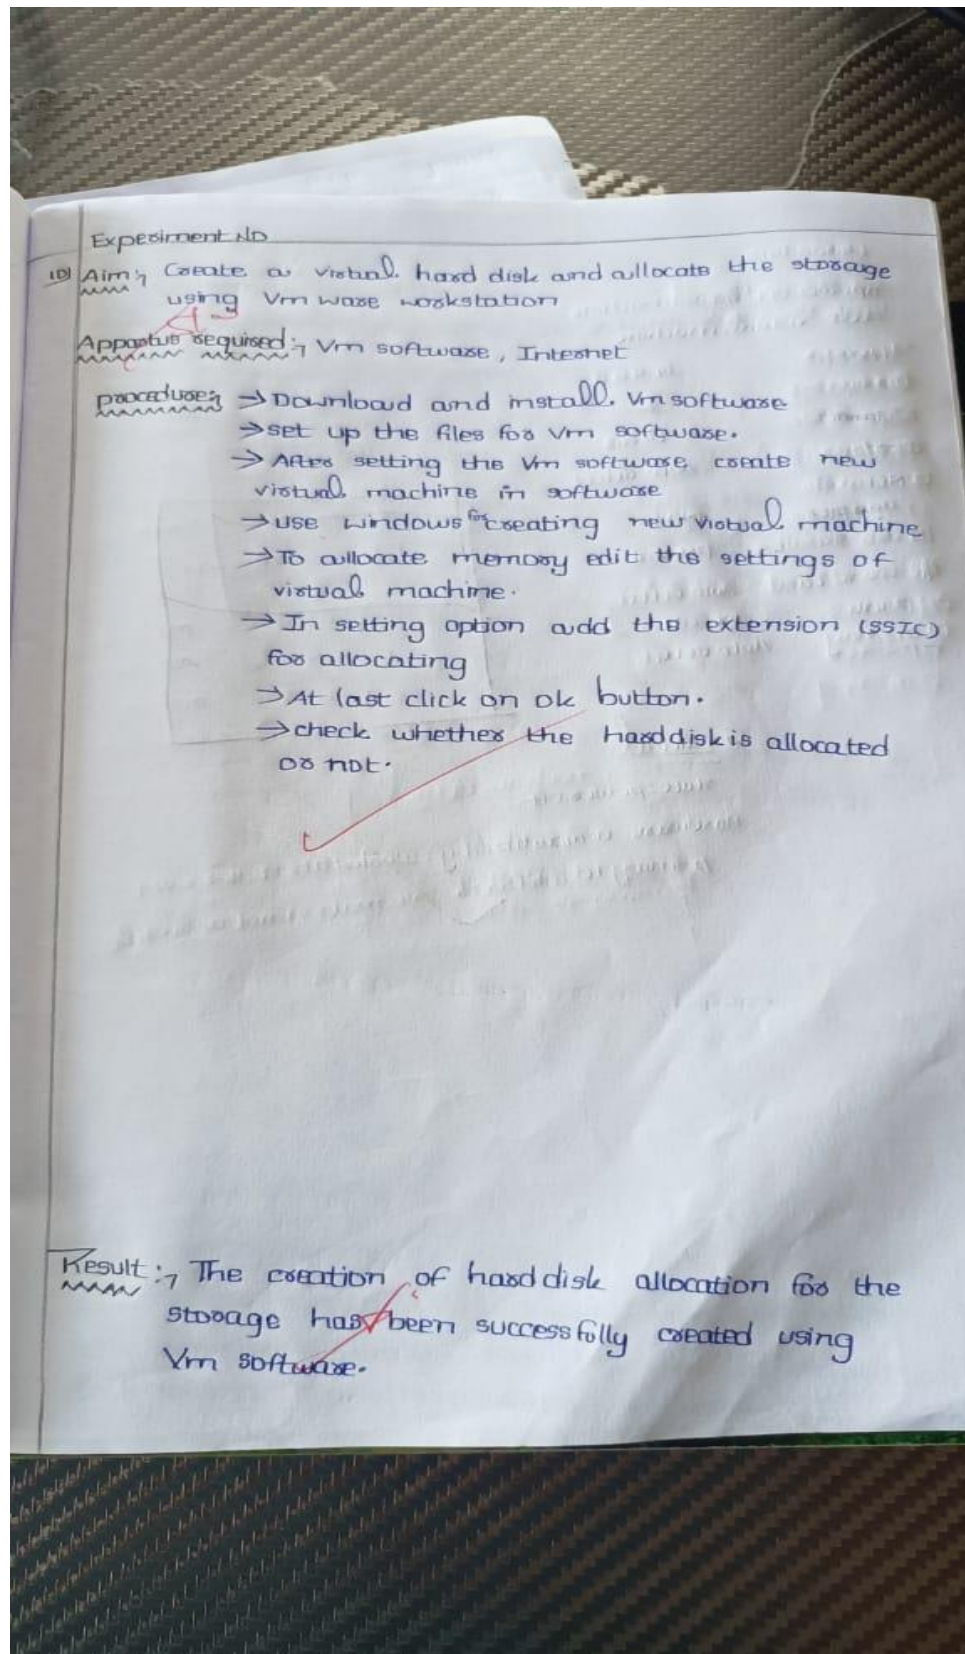 Experiment No
10) Aim:- Create a virtual hard disk and allocate the storage
using Vm ware workstation
Appartus required:- Vm software, Internet
procedure:- → Download and install Vm software
→ set up the files for Vm software.
→ After setting the Vm software create new
virtual machine in software
→ use windows for creating new virtual machine
→ To allocate memory edit the settings of
virtual machine.
→ In setting option add the extension (SSIC)
for allocating
→ At last click on ok button.
→ check whether the hard disk is allocated
or not.
Result:- The creation of hard disk allocation for the
storage has been successfolly created using
Vm software.